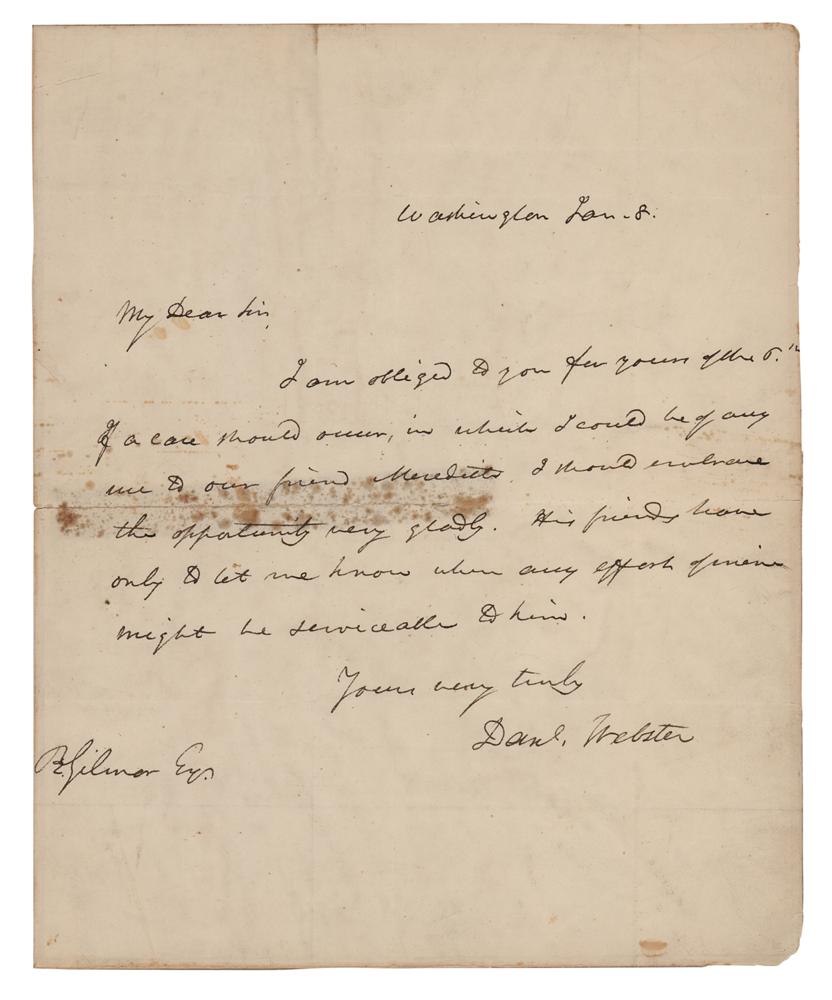 Washington Jan. 8.
My Dear Sir,
I am obliged to you for yours of the 6.th
If a case should occur, in which I could be of any
use to our friend Meredith, I should embrace
the opportunity very gladly. His friends have
only to let me know when any effort of mine
might be serviceable to him.
Yours very truly
Danl. Webster
R. Gilmor Esqr